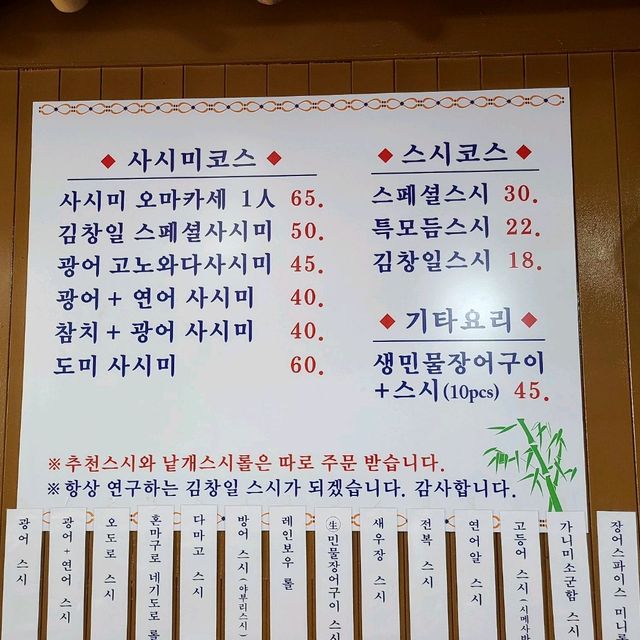 ◆ 사시미코스 ◆
사시미 오마카세 1人 65.
김창일 스페셜사시미 50.
광어 고노와다사시미 45.
광어 + 연어 사시미 40.
참치 + 광어 사시미 40.
도미 사시미 60.
◆ 스시코스 ◆
스페셜스시 30.
특모듬스시 22.
김창일스시 18.
◆ 기타요리 ◆
생민물장어구이
+스시(10pcs) 45.
※추천스시와 낱개스시롤은 따로 주문 받습니다.
※항상 연구하는 김창일 스시가 되겠습니다. 감사합니다.
광어 스시
광어+연어 스시
오도로 스시
혼마구로 네기도로 롤
다마고 스시
방어 스시(야부리스시)
레인보우 롤
㊛민물장어구이 스시
새우장 스시
전복 스시
연어알 스시
고등어 스시(시메사바
가니미소군함 스시
장어스파이스 미니롤